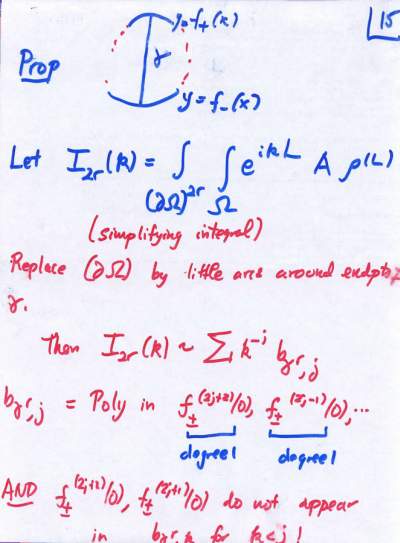 15
y=f₊(x)
γ
Prop
y=f₋(x)
Let I₂ᵣ(k) = ∫ ∫ e^{ikL} A ρ(L)
(∂Ω)²ʳ Ω
(simplifying integral)
Replace (∂Ω) by little arcs around endpts
γ.
Then I₂ᵣ(k) ~ ∑ k^{-j} b_{γ^r,j}
b_{γ^r,j} = Poly in f_±^{(2j+2)}(0), f_±^{(2j-1)}(0), ...
degree 1 degree 1
AND f_±^{(2j+2)}(0), f_±^{(2j+1)}(0) do not appear
in b_{γ^r,k} for k<j!